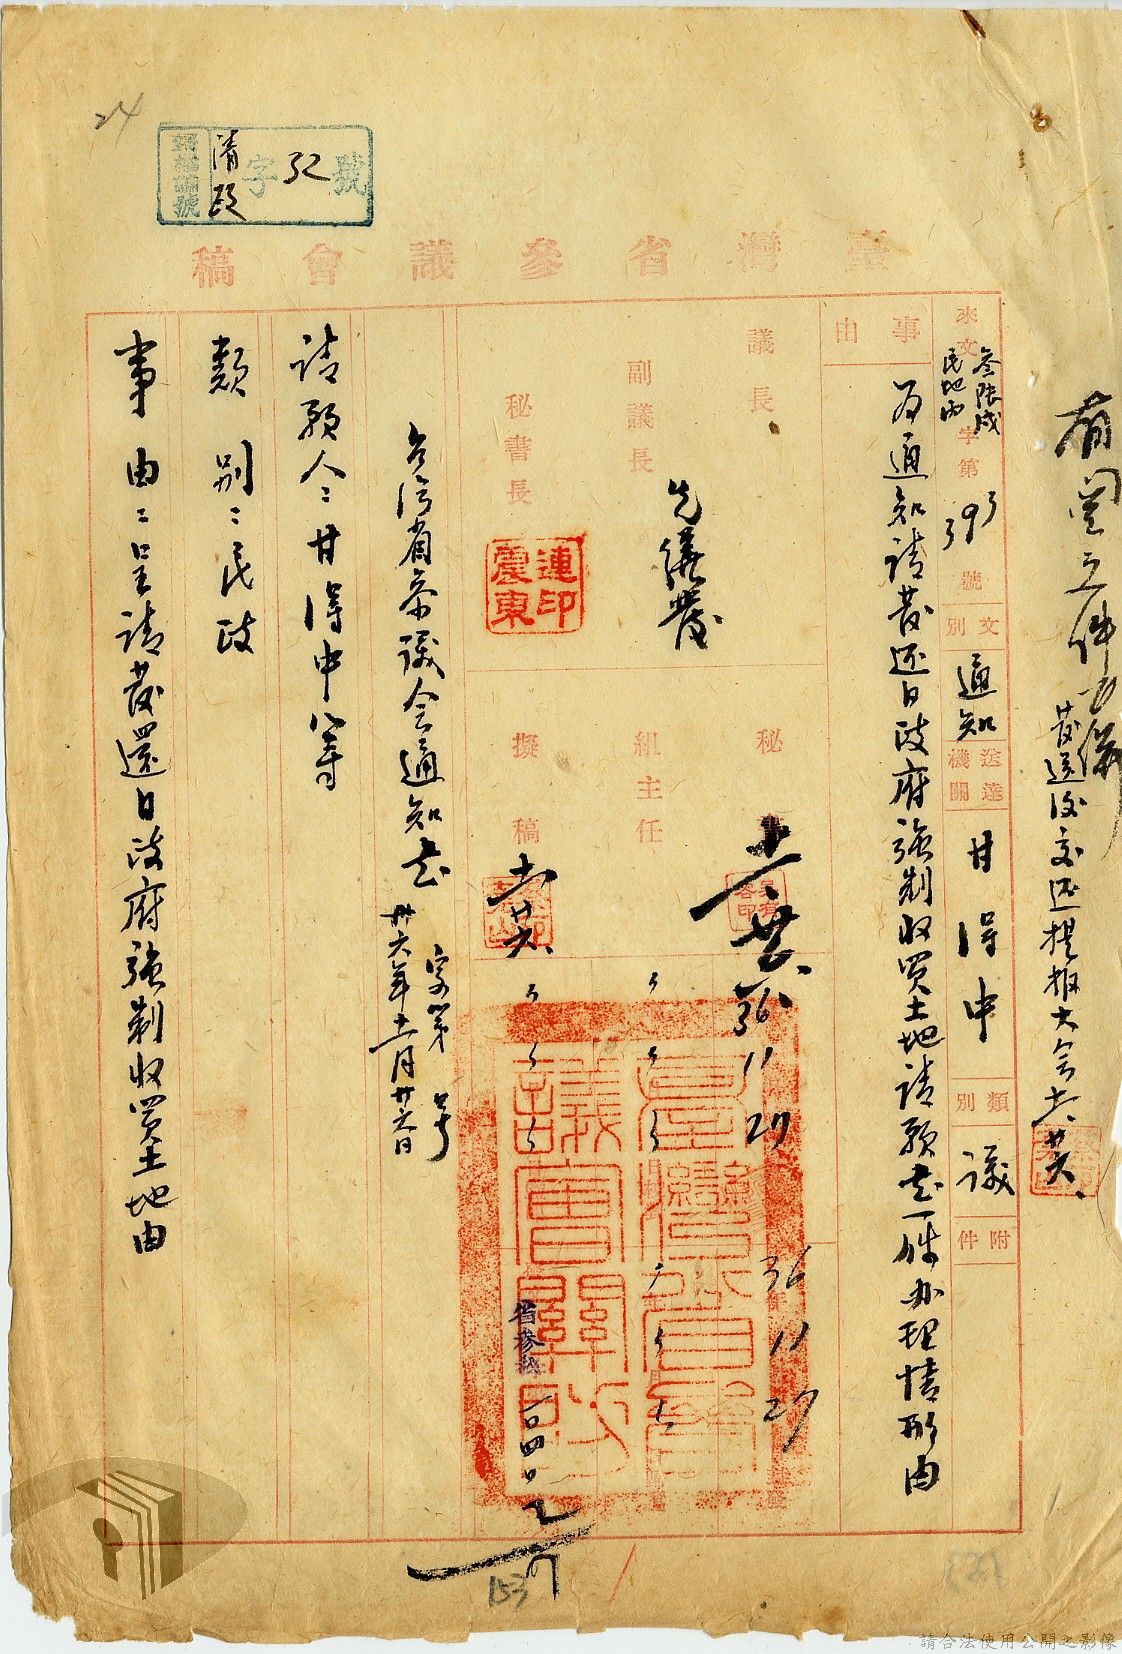 24
歸檔編號
清政字32號
臺灣省參議會稿
發還後交還提報大会
來文 字第393號
文別 通知
送達機關 甘得中
類別 議
附件
事由
為通知請發還日政府強制收買土地請願书一件办理情形由
議長
副議長
先繕發
秘書長
連震東印
秘書
組主任
擬稿
36 11 27
36 11 27
台湾省参議会通知书
字第 号
卅六年十一月廿六日
請願人:甘得中 等
類別:民政
事由:呈請發還日政府強制收買土地由
臺灣省參議會關防
153
請合法使用公開之影像